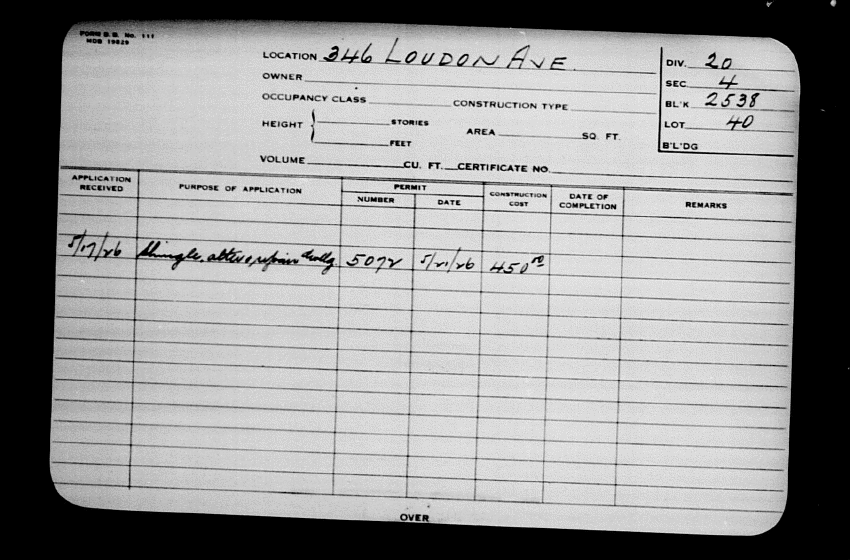 FORM B.B. No. 111
MDB 19829
LOCATION 346 LOUDON AVE.
OWNER
OCCUPANCY CLASS CONSTRUCTION TYPE
HEIGHT { STORIES
FEET
AREA SQ. FT.
VOLUME CU. FT. CERTIFICATE NO.
DIV. 20
SEC. 4
BL'K 2538
LOT 40
B'L'DG
APPLICATION RECEIVED PURPOSE OF APPLICATION PERMIT NUMBER DATE CONSTRUCTION COST DATE OF COMPLETION REMARKS
5/17/26 Shingle, alter & repair dwllg. 5072 5/21/26 450.00
OVER